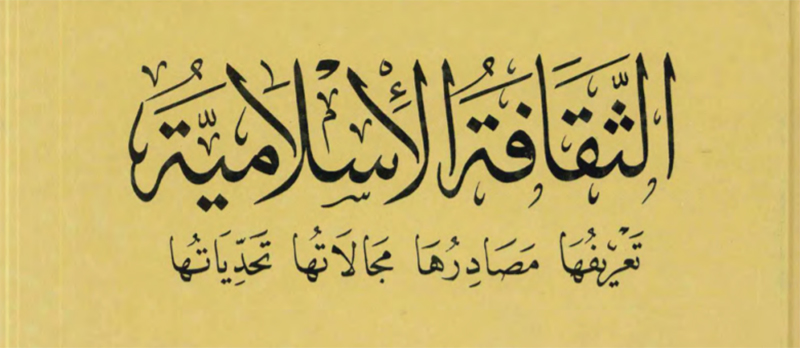 الثَّقَافَةُ الْإِسْلَامِيَّةُ
تَعْرِيفُهَا مَصَادِرُهَا مَجَالَاتُهَا تَحَدِّيَاتُهَا